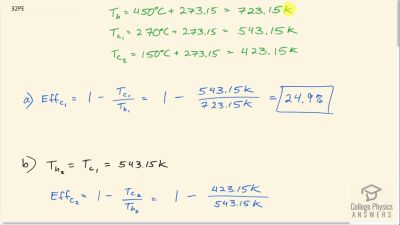 32PE
T_h = 450°C + 273.15 = 723.15K
T_c1 = 270°C + 273.15 = 543.15K
T_c2 = 150°C + 273.15 = 423.15K
a) Eff_c1 = 1 - T_c1/T_h1 = 1 - 543.15K/723.15K = 24.9%
b) T_h2 = T_c1 = 543.15K
Eff_c2 = 1 - T_c2/T_h2 = 1 - 423.15K/543.15K
College Physics
ANSWERS